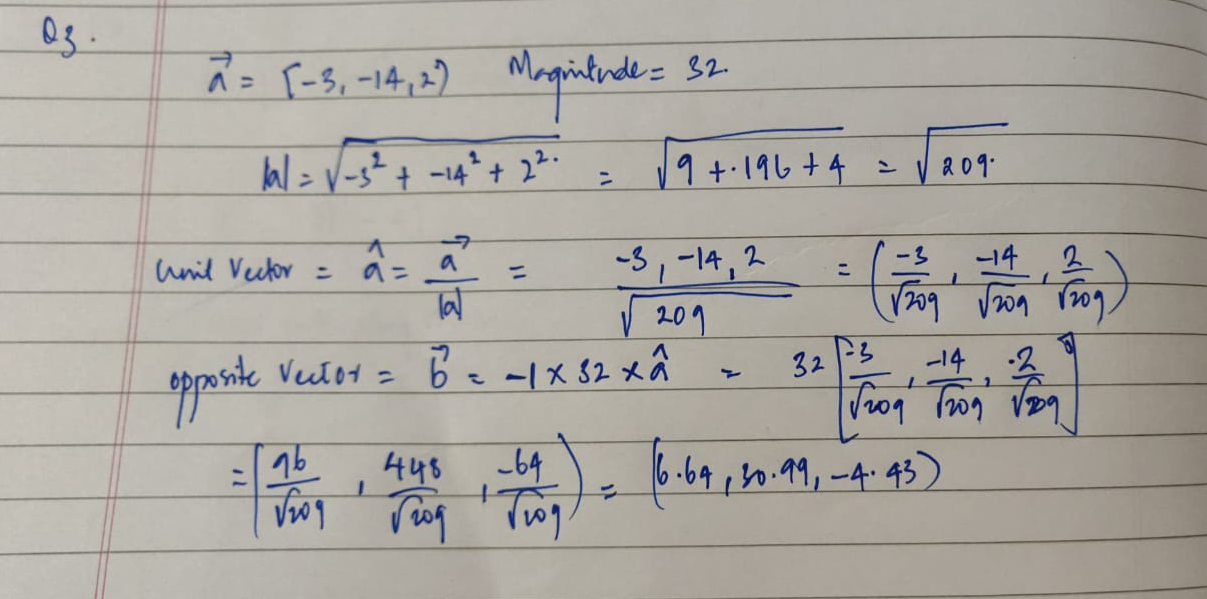 Q3.
a⃗ = [-3, -14, 2) Magnitude = 32.
|a| = √-3² + -14² + 2². = √9 + 196 + 4 = √209.
Unit Vector = â = a⃗/|a| = -3, -14, 2/√209 = (-3/√209, -14/√209, 2/√209)
opposite Vector = b⃗ = -1 × 32 × â = 32 [-3/√209, -14/√209, -2/√209]
= (96/√209, 448/√209, -64/√209) = (6.64, 30.99, -4.43)